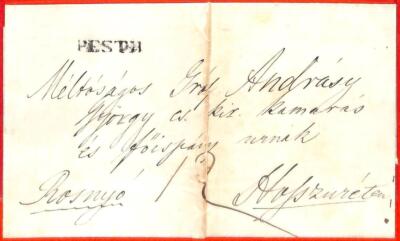 PESTH
Méltóságos Gróf Andrásy
György cs. kir. kamarás
és főispány urnak
Rosnyó Hosszuréten